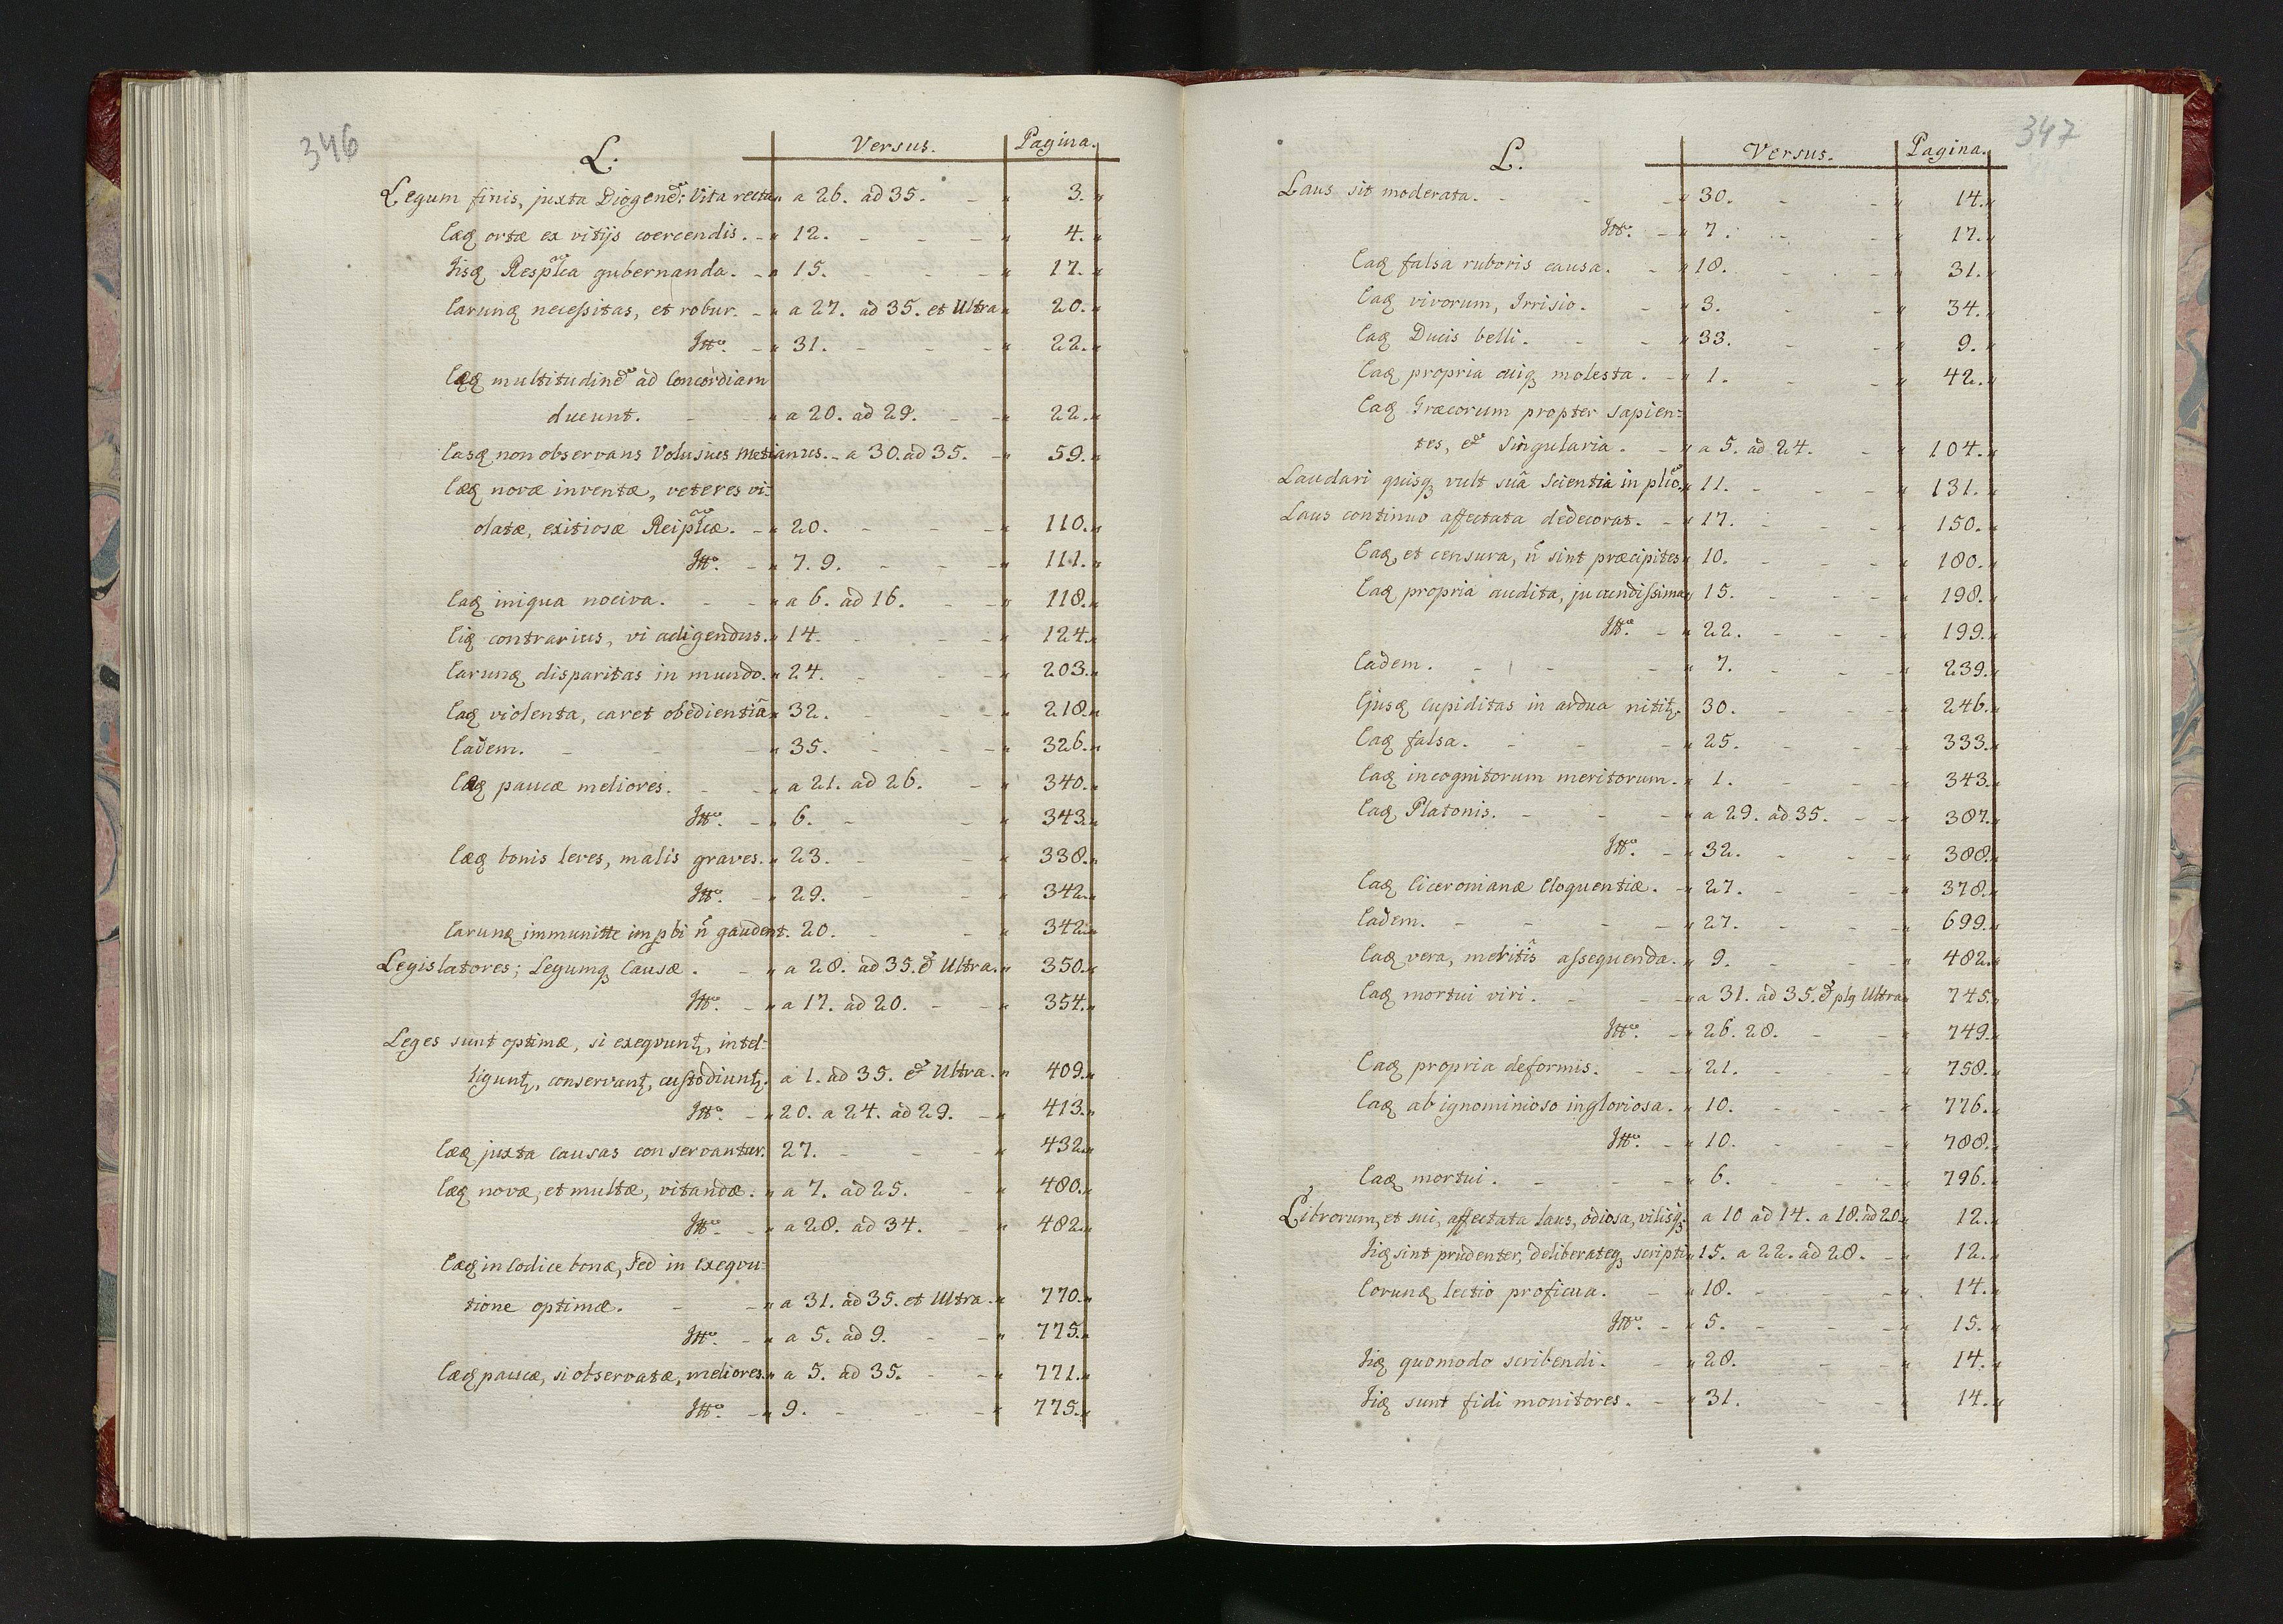 346
L. Versus. Pagina.
Legum finis, juxta Diogenē: Vita recta „ a 26. ad 35. - „ 3. „
Eæq ortæ ex vitijs coercendis. - „ 12. - - - „ 4. „
Iisq Resplca gubernanda. - „ 15. - - - „ 17. „
Earunq necessitas, et robur. - „ a 27. ad 35. et Ultra „ 20. „
Itto. - „ 31. - - - „ 22. „
Eæq multitudinē ad Concordiam
ducunt. - „ a 20. ad 29. - - „ 22. „
Easq non observans Volusius Metianus. - a 30. ad 35. - „ 59. „
Eæq novæ inventæ, veteres vi=
olatæ, exitiosæ Reiplcæ. - „ 20. - - - „ 110. „
Itto. - „ 7. 9. - - - „ 111. „
Eaq iniqua nociva. - - „ a 6. ad 16. - - „ 118. „
Eiq contrarius, vi adigendus. „ 14. - - - „ 124. „
Earunq disparitas in mundo. „ 24. - - - „ 203. „
Eaq violenta, caret obedientiâ „ 32. - - - „ 218. „
Eadem. - - - „ 35. - - - „ 326. „
Eæq paucæ meliores. - - „ a 21. ad 26. - „ 340. „
Itto. - „ 6. - - „ 343. „
Eæq bonis leves, malis graves. „ 23. - - „ 338. „
Itto. - „ 29. - - „ 342. „
Earunq immunitte improbi ñ gaudent. 20. - - „ 342. „
Legislatores; Legumq Causæ. - „ a 28. ad 35. & Ultra. „ 350. „
Itto. - „ a 17. ad 20. - - „ 354. „
Leges sunt optimæ, si exequunt, intel=
ligunt, conservant, custodiunt. a 1. ad 35. & Ultra. „ 409. „
Itto. - „ 20. a 24. ad 29. - „ 413. „
Eæq juxta Causas conservantur. 27. - - - „ 432. „
Eæq novæ, et multæ, vitandæ. „ a 7. ad 25. - „ 480. „
Itto. - „ a 28. ad 34. - „ 482. „
Eæq in Codice bonæ, sed in Exequu=
tione optimæ. - - „ a 31. ad 35. et Ultra. „ 770. „
Itto. - „ a 5. ad 9. - - „ 775. „
Eæq paucæ, si observatæ, meliores. „ a 5. ad 35. - - „ 771. „
Itto. - „ 9. - - - „ 775. „
347
L. Versus. Pagina.
Laus sit moderata. - - - „ 30. - - „ 14. „
Itto. - „ 7. - - „ 17. „
Eaq falsa ruboris causa. - „ 18. - - „ 31. „
Eaq vivorum, Irrisio. - „ 3. - - „ 34. „
Eaq Ducis belli. - - „ 33. - - „ 9. „
Eaq propria cuiq molesta. - „ 1. - - „ 42. „
Eaq Græcorum propter sapien=
tes, & singularia. - „ a 5. ad 24. - „ 104. „
Laudari quisq vult suâ Scientia in plico. „ 11. - - - „ 131. „
Laus continuo affectata dedecorat. - „ 17. - - - „ 150. „
Eaq, et censura, ñ sint præcipites „ 10. - - - „ 180. „
Eaq propria audita, jucundissima „ 15. - - - „ 198. „
Itto. - „ 22. - - - „ 199. „
Eadem. - - - „ 7. - - - „ 239. „
Ejusq cupiditas in ardua nitit. 30. - - - „ 246. „
Eaq falsa. - - - „ 25. - - - „ 333. „
Eaq incognitorum meritorum. „ 1. - - - „ 343. „
Eaq Platonis. - - - „ a 29. ad 35. - - „ 387. „
Itto. - „ 32. - - - „ 388. „
Eaq Ciceronianæ Eloquentiæ. - „ 27. - - - „ 378. „
Eadem. - - - - „ 27. - - - „ 699. „
Eaq vera, meritis assequenda. „ 9. - - - „ 482. „
Eaq mortui viri. - - „ a 31. ad 35. & plq Ultra „ 745. „
Itto. - „ 26. 28. - - „ 749. „
Eaq propria deformis. - - „ 21. - - - „ 758. „
Eaq ab ignominioso ingloriosa. „ 10. - - - „ 776. „
Itto. - „ 10. - - - „ 788. „
Eaq mortui. - - - „ 6. - - - „ 796. „
Librorum, et sui, affectata laus, odiosa, vilisq. a 10 ad 14. a 18. ad 20. „ 12. „
Iiq sint prudenter, deliberateq scripti „ 15. a 22. ad 28. - „ 12. „
Eorunq lectio proficua. - „ 18. - - - „ 14. „
Itto. - „ 5. - - - „ 15. „
Iiq quomodo scribendi. - „ 28. - - „ 14. „
Iiq sunt fidi monitores. - „ 31. - - „ 14. „